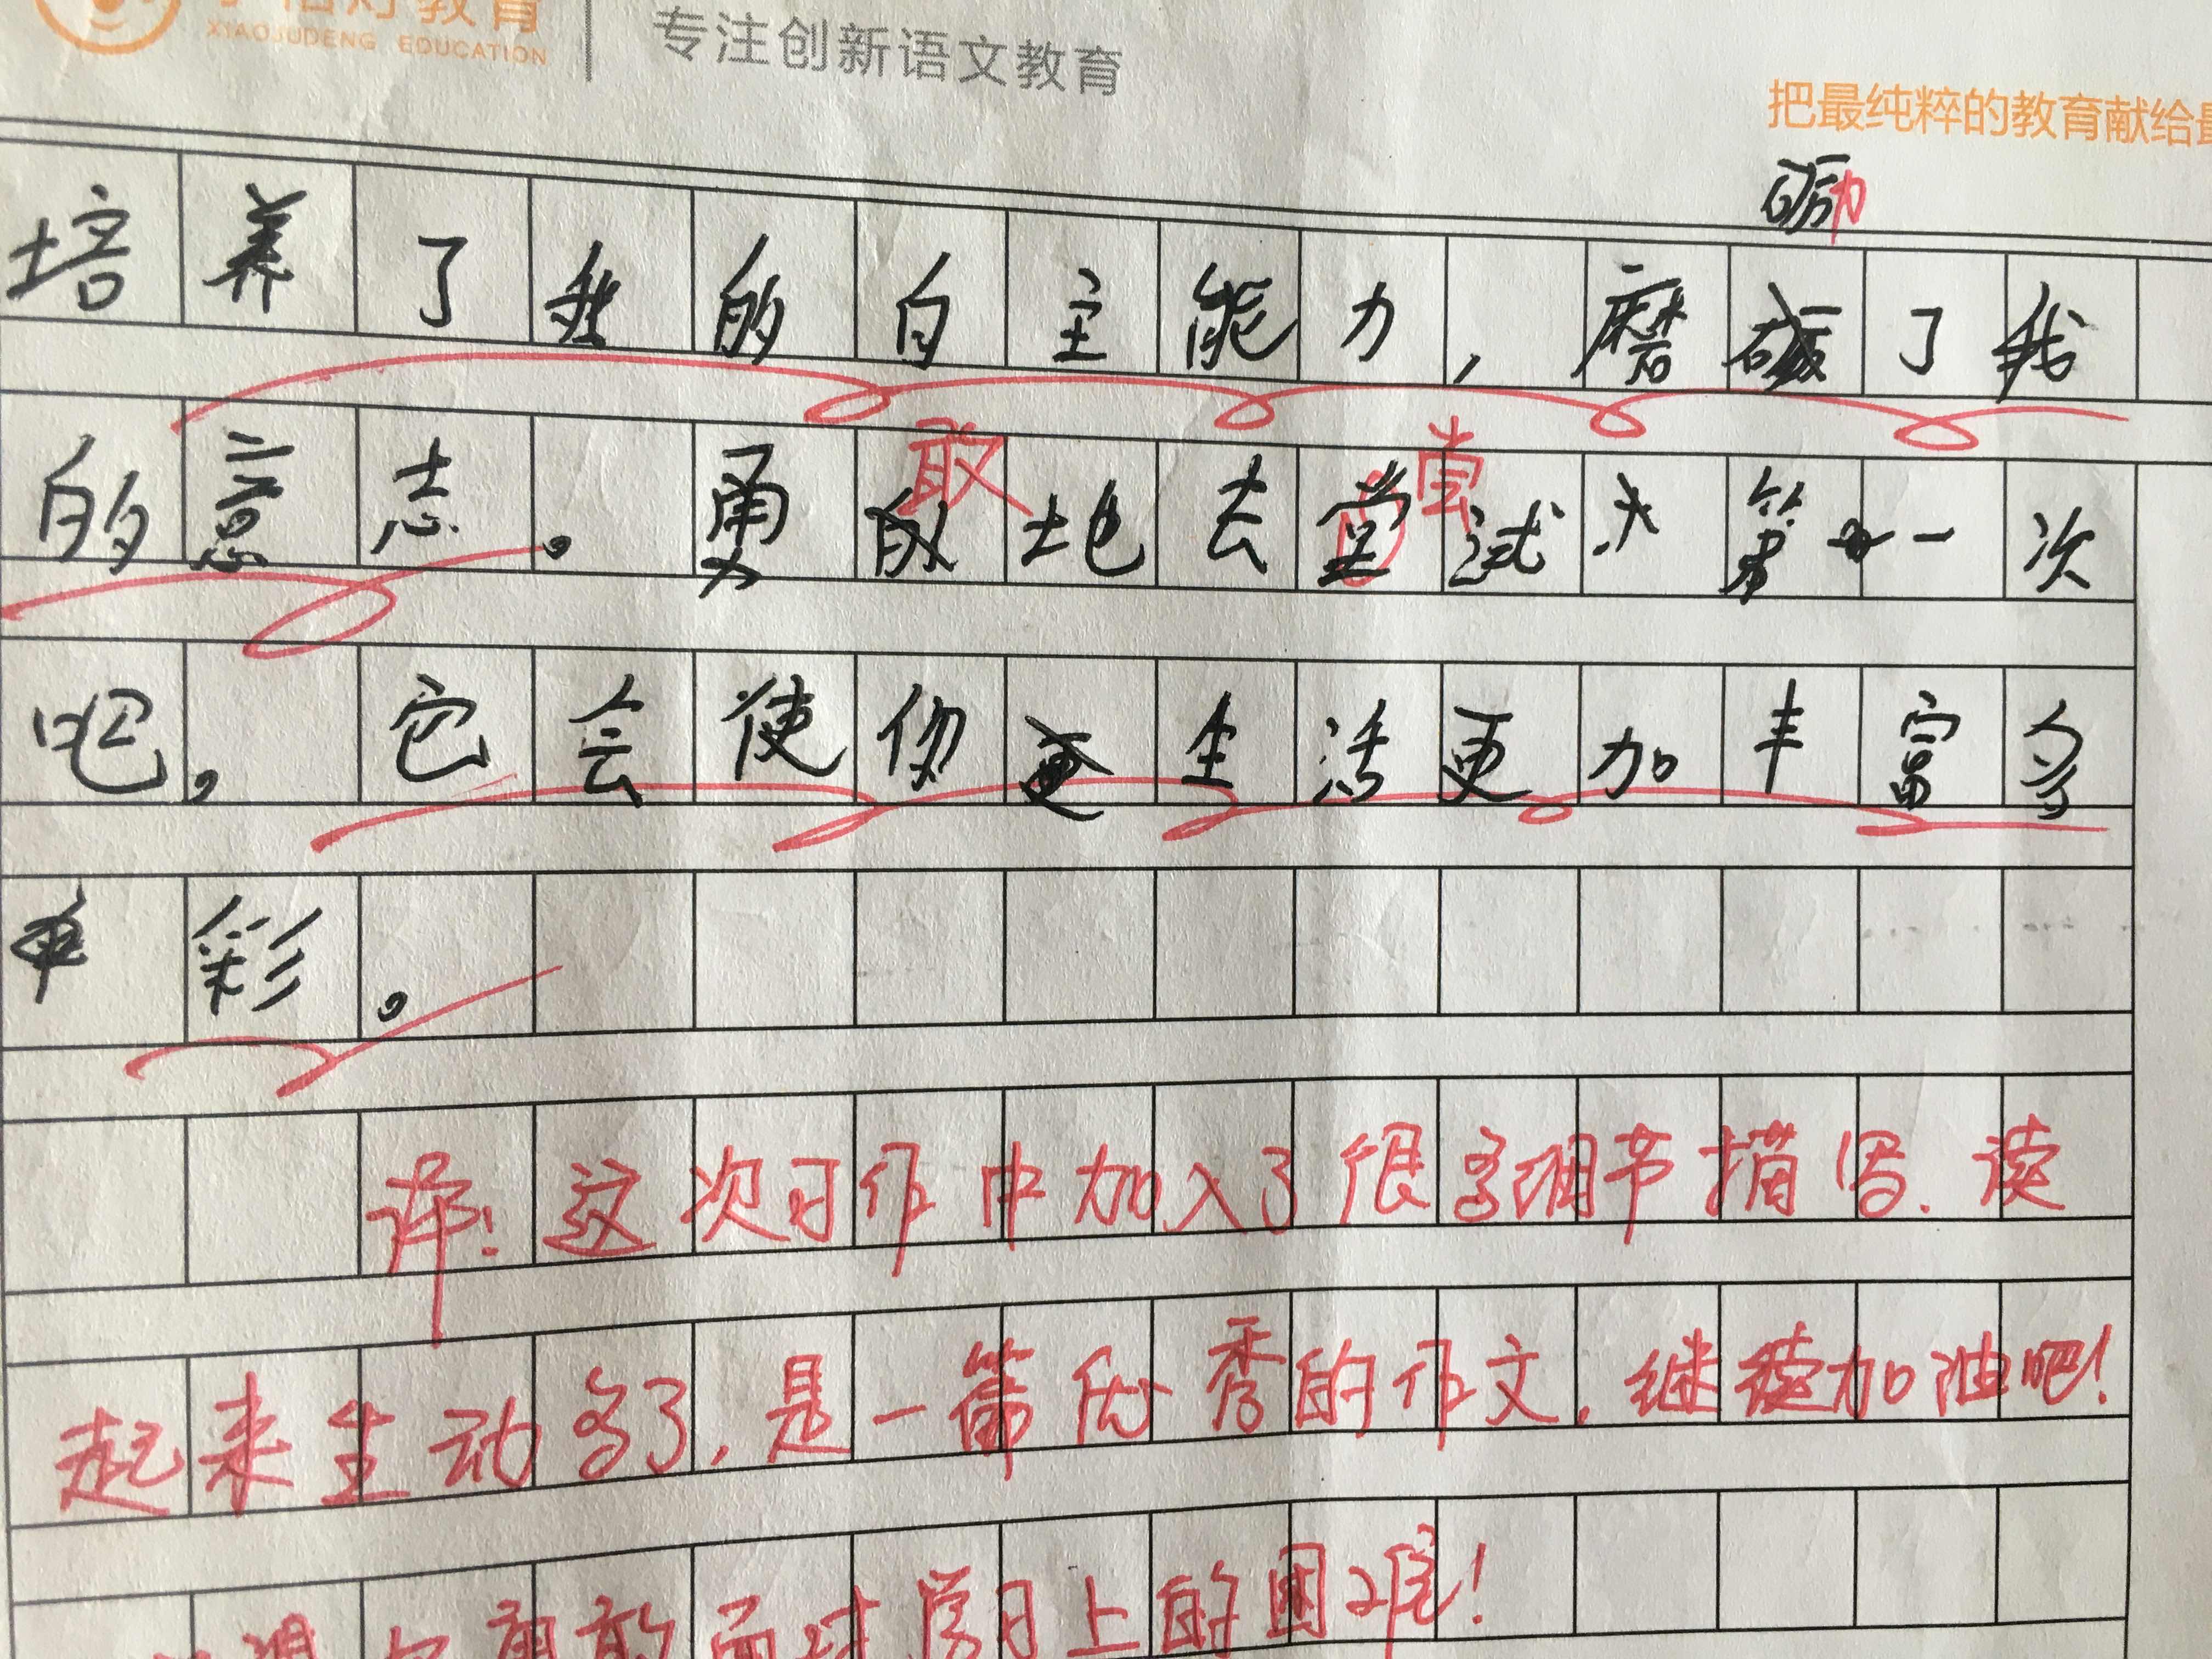 教育
XIAOJUDENG EDUCATION
专注创新语文教育
把最纯粹的教育献给最
砺
培养了我的自主能力，磨了我
的意志。勇敢地去尝试第一次
吧。它会使你生活更加丰富多
彩。
评：这次习作中加入了很多细节描写，读
起来生动多了，是一篇优秀的作文，继续加油吧！
勇敢面对学习上的困难！